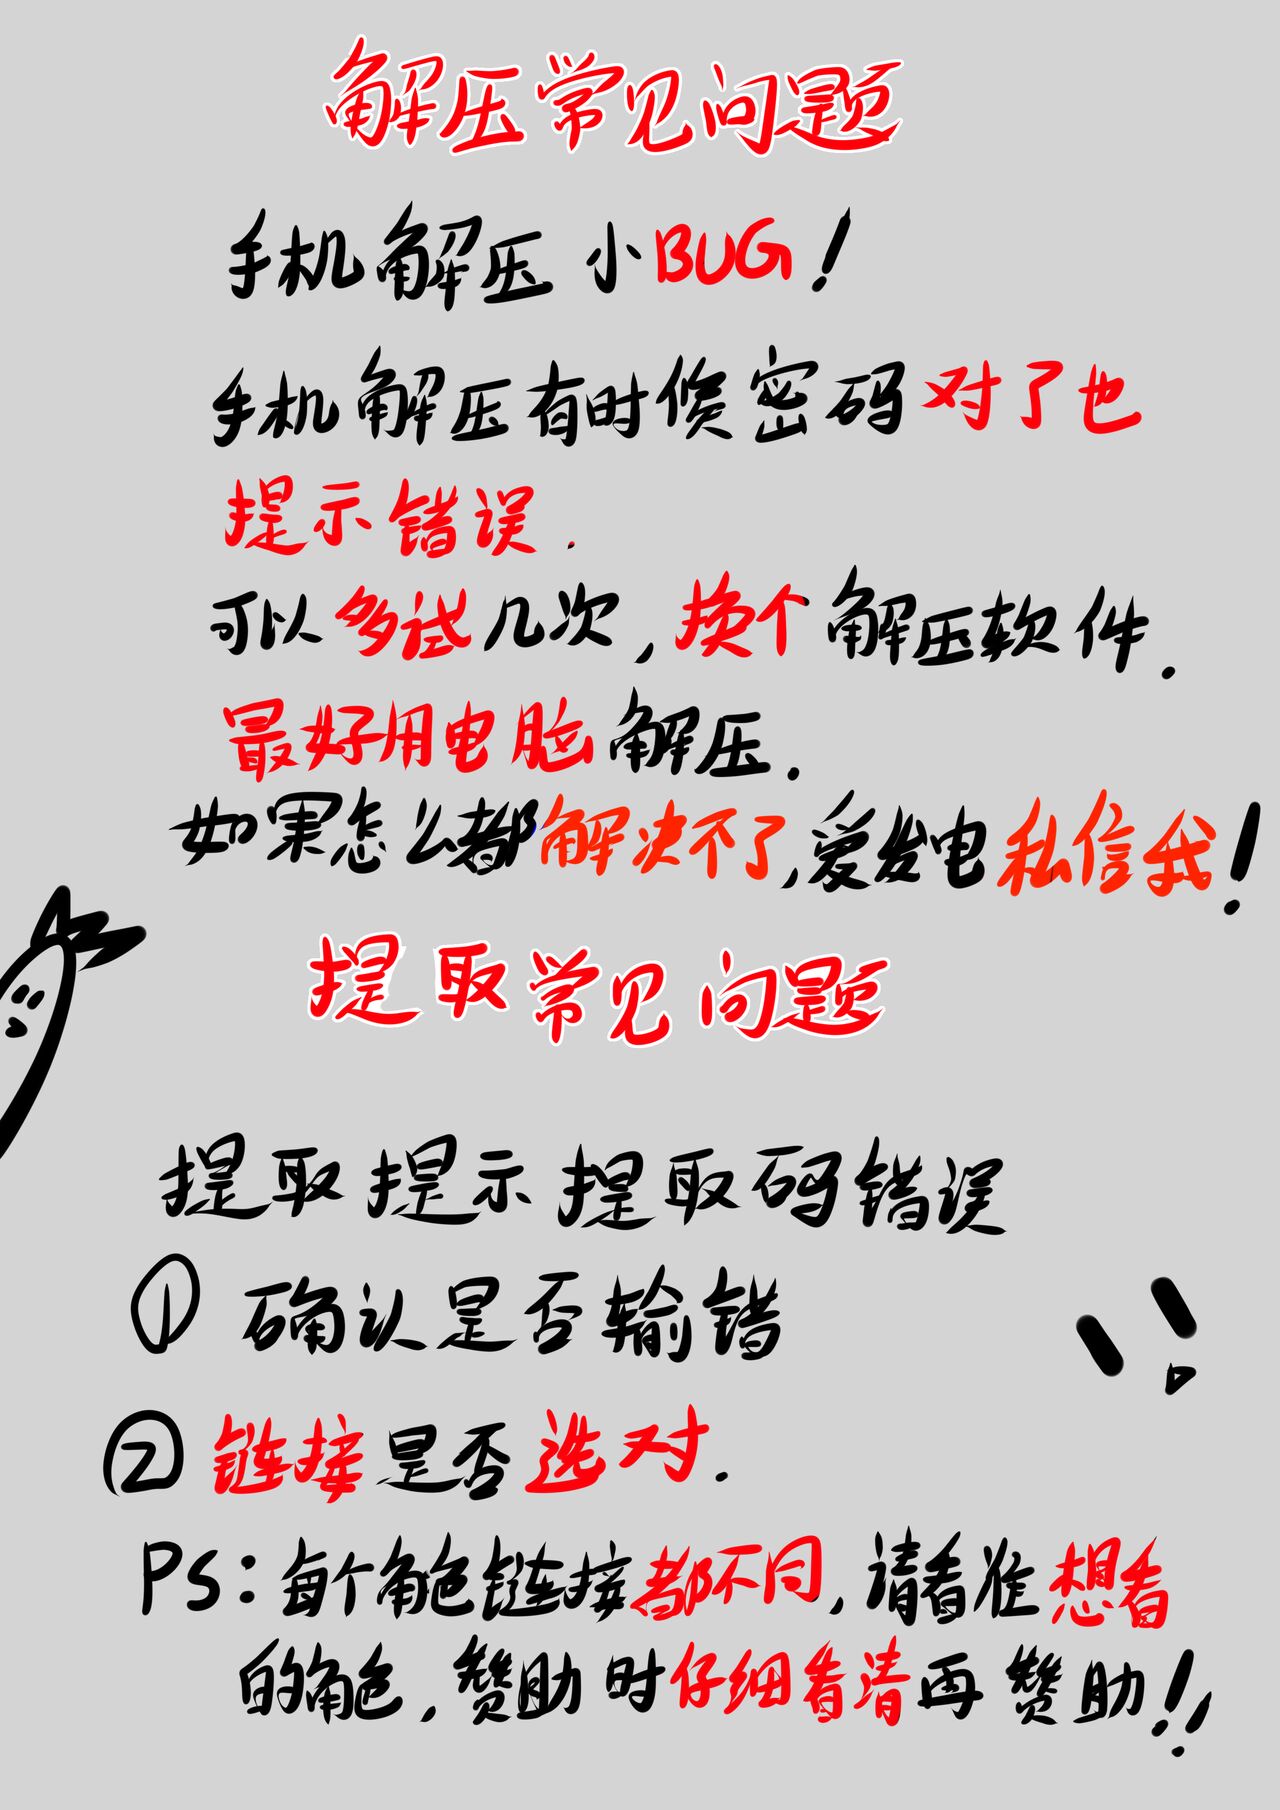 解压常见问题
手机解压小BUG!
手机解压有时候密码对了也
提示错误.
可以多试几次,换个解压软件.
最好用电脑解压.
如果怎么都解决不了,爱发电私信我!
提取常见问题
提取提示提取码错误
① 确认是否输错
② 链接是否选对.
PS:每个角色链接都不同,请看准想看
的角色,赞助时仔细看清再赞助!!